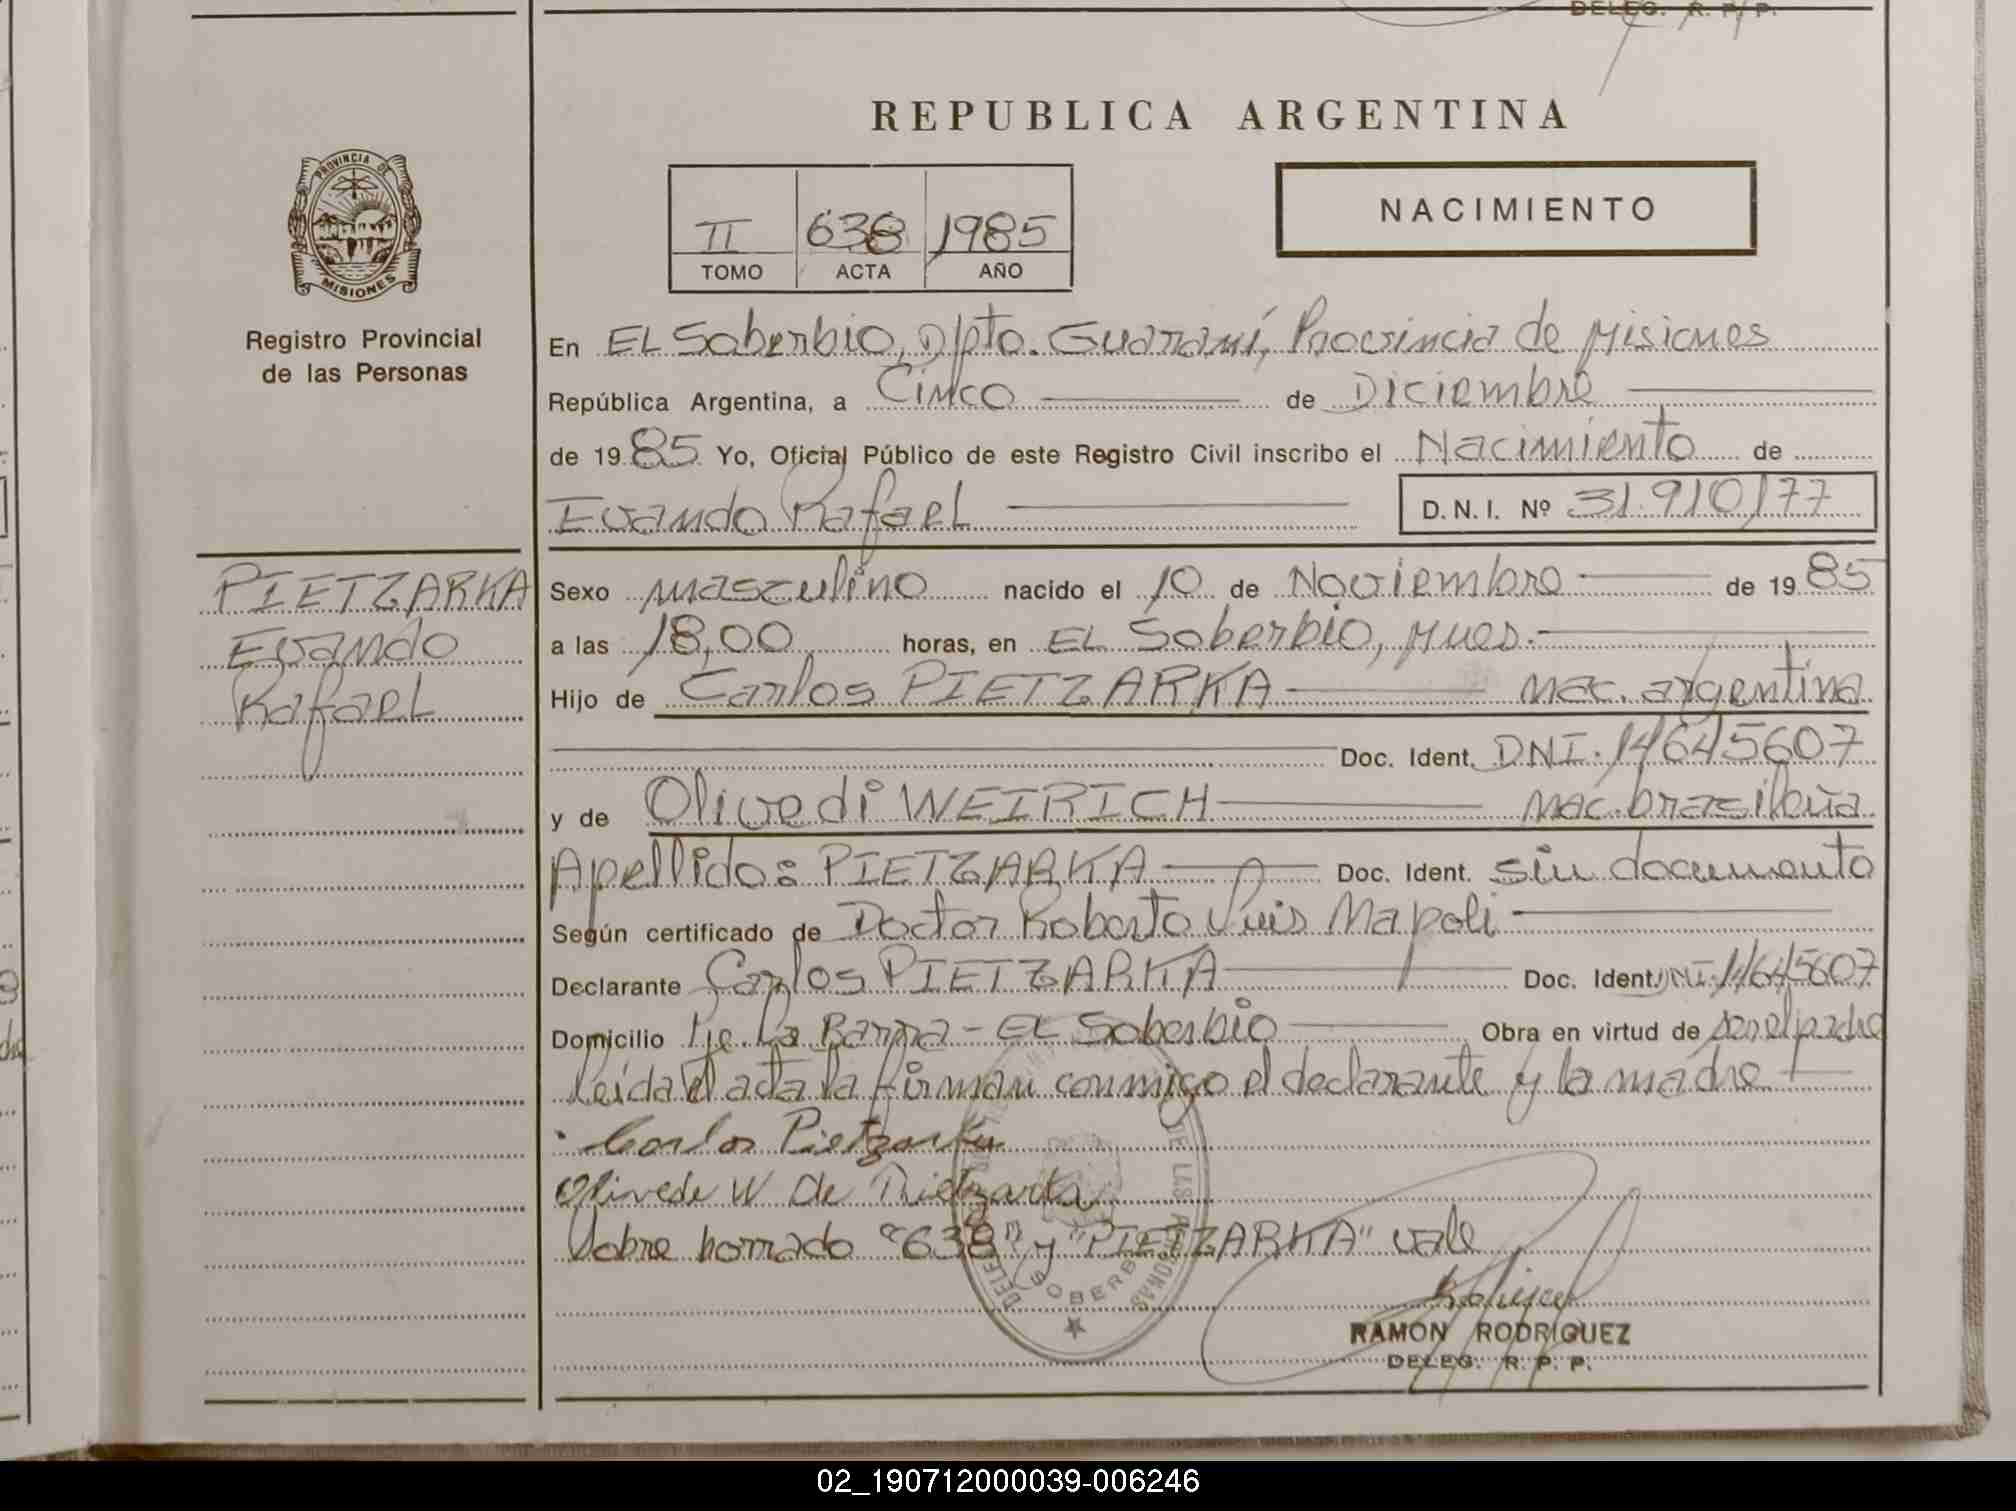 DELEG. R. P. P.
REPUBLICA ARGENTINA
PROVINCIA DE
MISIONES
Registro Provincial
de las Personas
II 638 1985
TOMO ACTA AÑO
NACIMIENTO
En EL Soberbio, Dpto. Guaraní, Provincia de Misiones
República Argentina, a Cinco de Diciembre
de 1985 Yo, Oficial Público de este Registro Civil inscribo el Nacimiento de
Evando Rafael D.N.I. Nº 31.910177
PIETZARKA
Evando
Rafael
Sexo masculino nacido el 10 de Noviembre de 1985
a las 18,00 horas, en EL Soberbio, Mnes.
Hijo de Carlos PIETZARKA nac. argentina
Doc. Ident. DNI. 14645607
y de Olivedi WEIRICH nac. brasileña
Apellido: PIETZARKA Doc. Ident. sin documento
Según certificado de Doctor Roberto Luis Napoli
Declarante Carlos PIETZARKA Doc. Ident. DNI. 14645607
Domicilio Pje. La Barra - EL Soberbio Obra en virtud de ser el padre
Leída el acta la firman conmigo el declarante y la madre
Carlos Pietzarka
Olivede W De Pietzarka
Sobre borrado "638" y "PIETZARKA" vale
RAMON RODRIGUEZ
DELEG. R. P. P.
02_190712000039-006246